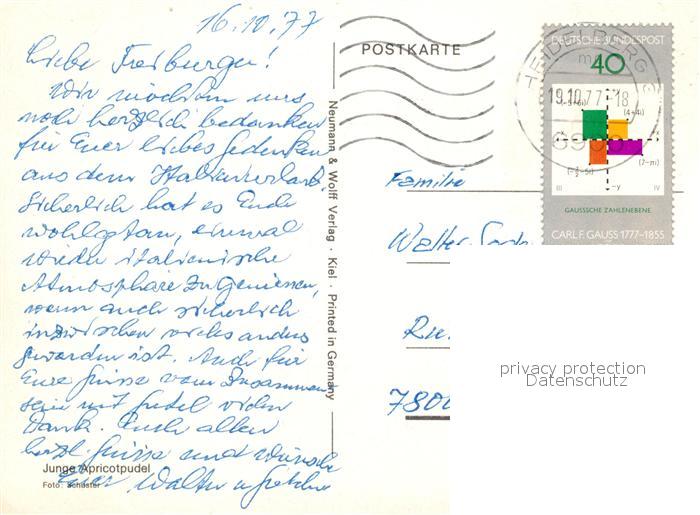 16.10.77
Liebe Freiburger!
Wir möchten uns
noch herzlich bedanken
für Euer liebes Gedenken
aus dem Italienurlaub.
Sicherlich hat es Euch
wohlgetan, einmal
wieder italienische
Atmosphäre zu genießen,
wenn auch sicherlich
inzwischen vieles anders
geworden ist. Auch für
Eure Grüsse vom Zusammen
sein mit Gretel vielen
Dank. Euch allen
herzl. Grüsse und Wünsche
Euer Walter u
Junge Apricotpudel
Foto: Schuster
Neumann & Wolff Verlag · Kiel · Printed in Germany
POSTKARTE
Familie
Walter
7800
DEUTSCHE BUNDESPOST
40
HEIDELBERG
19.10.77-18
(-5+6i)
(4+4i)
(7-πi)
III
-y
IV
GAUSSSCHE ZAHLENEBENE
CARL F. GAUSS 1777-1855
privacy protection
Datenschutz